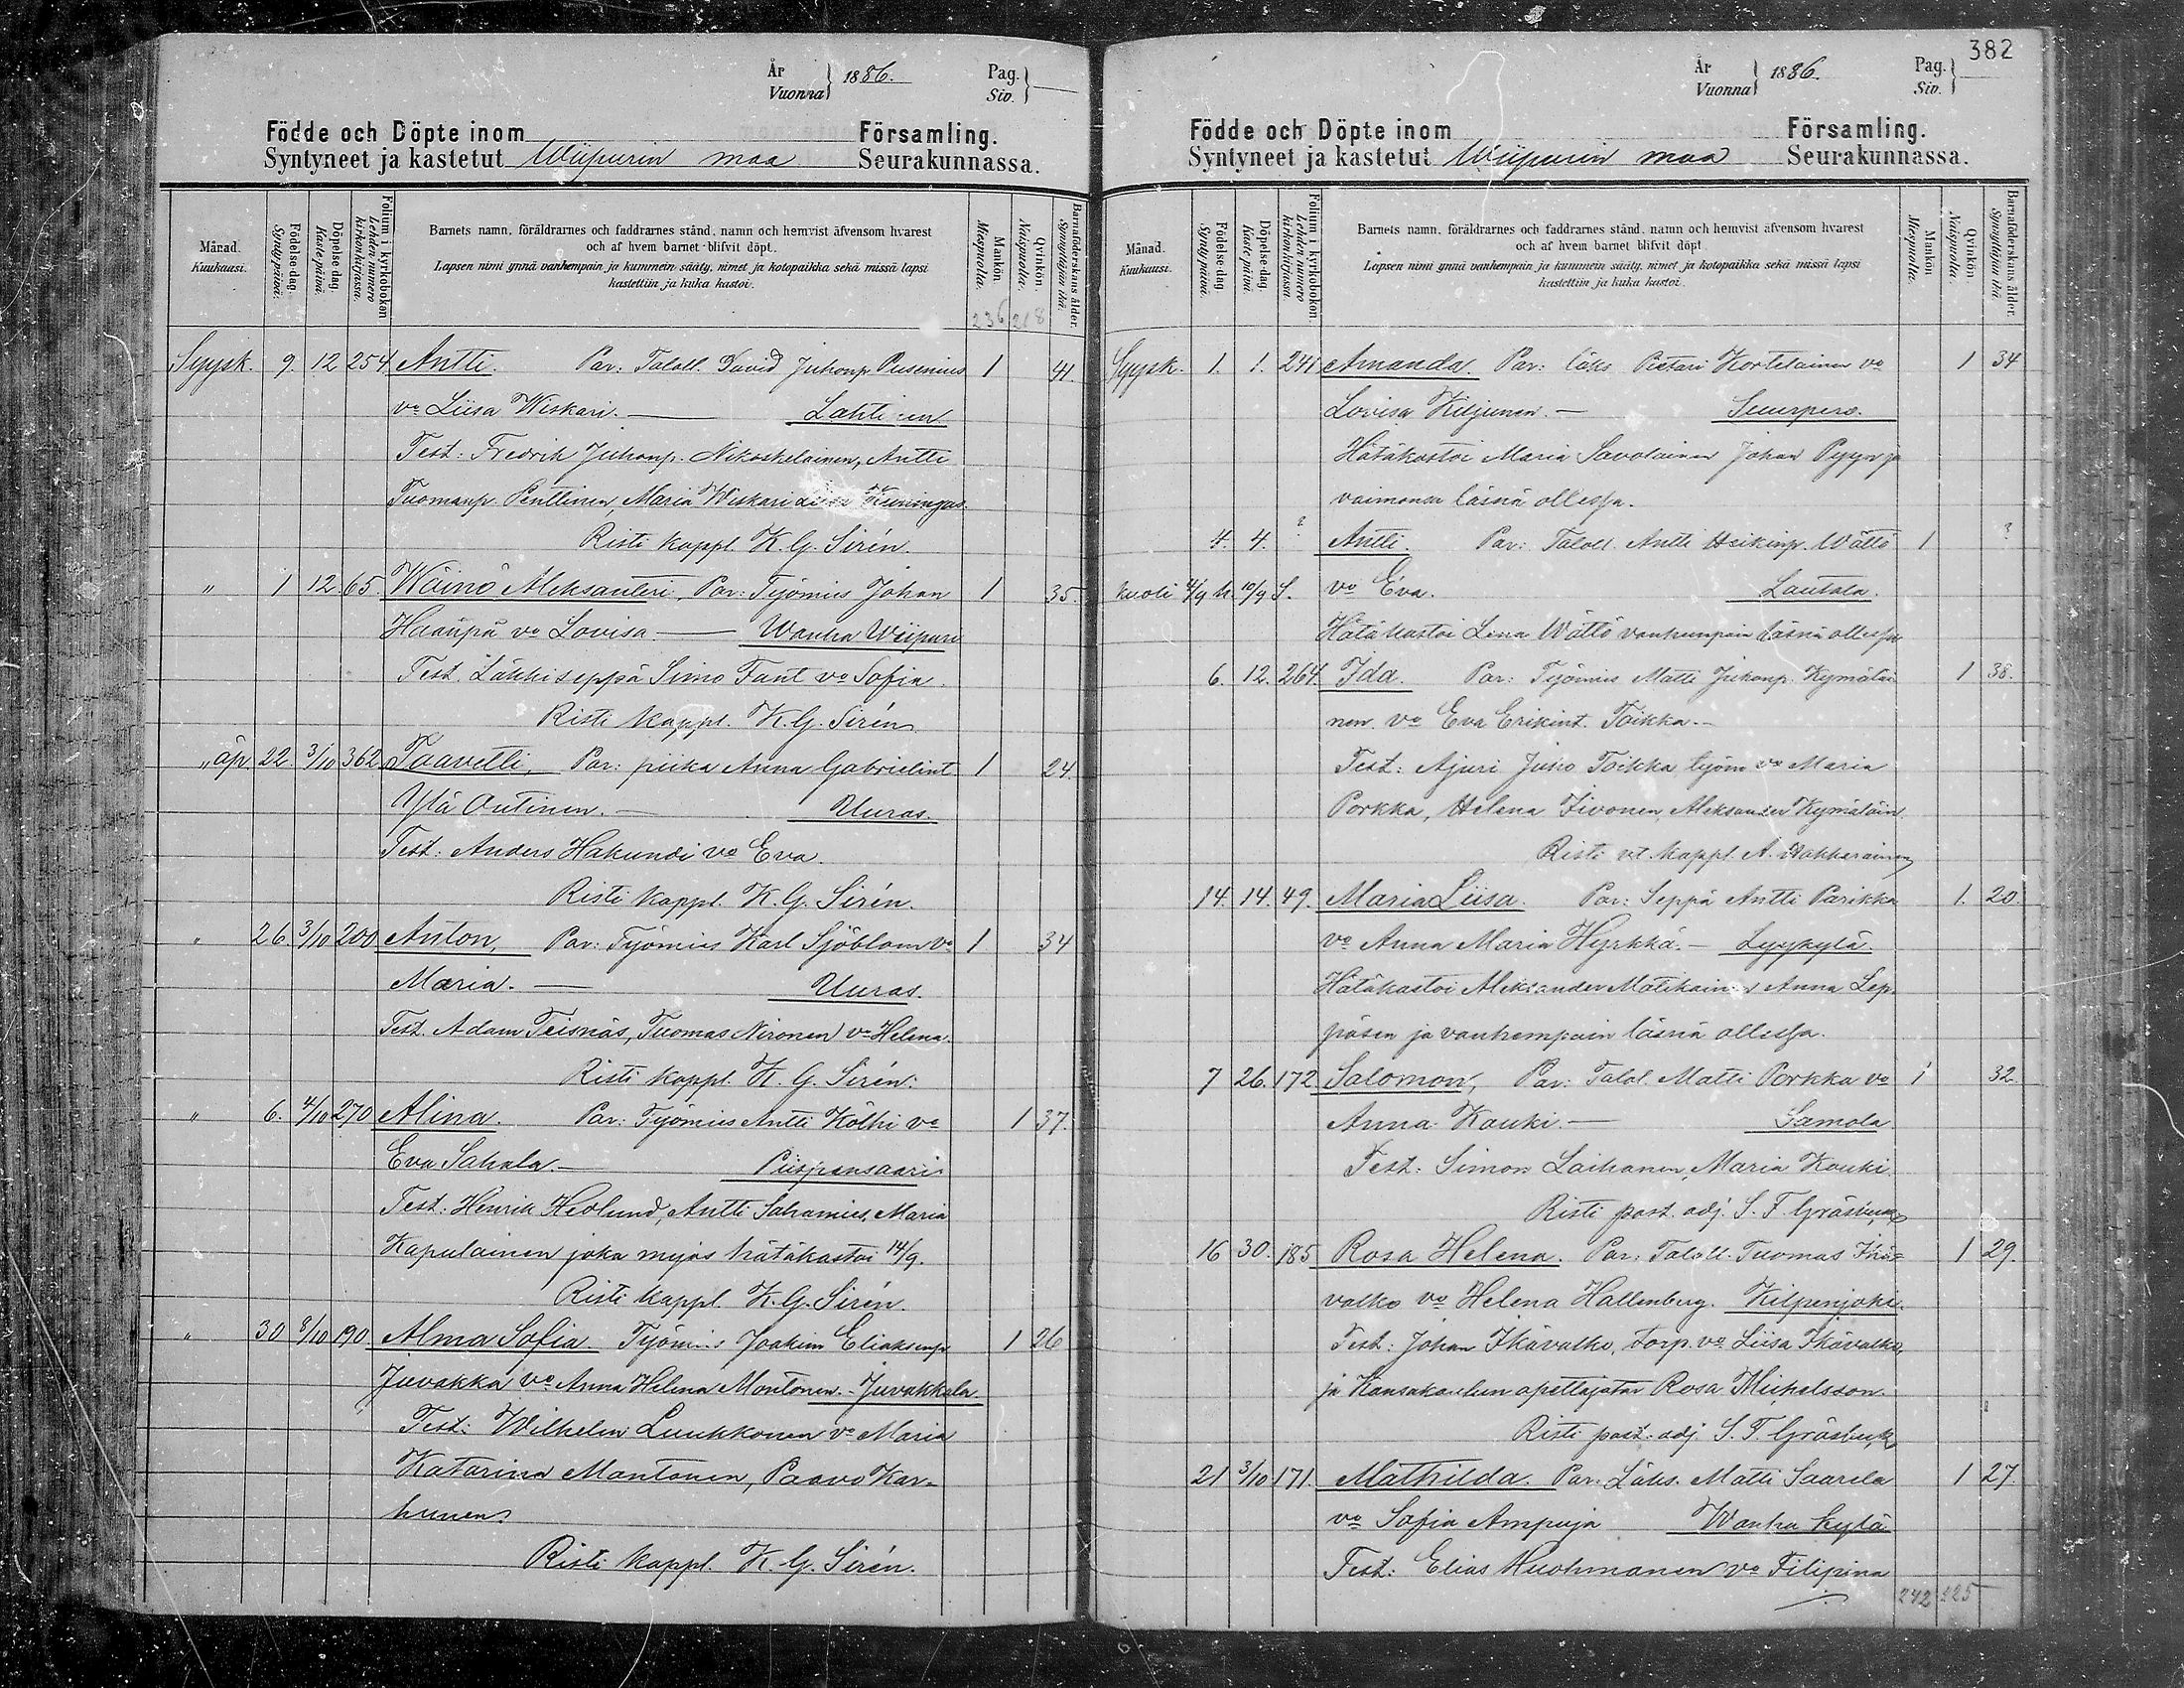 År
Vuonna } 1886.
Pag.
Siv. } —
Födde och Döpte inom Församling.
Syntyneet ja kastetut Wiipurin maa Seurakunnassa.
Månad.
Kuukausi.
Födelse-dag.
Syntypäivä.
Döpelse-dag.
Kastepäivä.
Folium i kyrkoboken
Lehden numero kirkonkirjassa.
Barnets namn, föräldrarnes och faddrarnes stånd, namn och hemvist äfvensom hvarest
och af hvem barnet blifvit döpt.
Lapsen nimi ynnä vanhempain ja kummein sääty, nimet ja kotopaikka sekä missä lapsi
kastettiin ja kuka kastoi.
Mankön.
Miespuolta.
Qvinkön.
Naispuolta.
Barnaföderskans ålder.
Synnyttäjän ikä.
236 218
Syysk. 9. 12 254 Antti. Par: Taloll. David Juhonp. Pusenius 1 41.
vo Liisa Wiskari. — Lahtinen.
Test: Fredrik Juhonp. Nikoskelainen, Antti
Tuomanp. Penttinen, Maria Wiskari Kuningas.
Risti kappl. K. G. Sirén.
" 1 12 65. Wäinö Aleksanteri. Par: Työmies Johan 1 35.
vo Lovisa. — Wanha Wiipuri
Test. Läkkiseppä Simo Fant vo Sofia.
Risti kappl. K. G. Sirén
" äp. 22. 3/10 362 Taavetti, Par: piika Anna Gabrielint. 1 24.
Ylä Outinen. — Uuras.
Test: Anders Hakundi vo Eva
Risti kappl. K. G. Sirén.
" 26 3/10 200 Anton, Par: Työmies Karl Sjöblom vo 1 34
Maria. — Uuras.
Test. Adam Teisnäs, Tuomas Nironen vo Helena.
Risti kappl. K. G. Sirén.
" 6. 4/10 270 Alina. Par: Työmies Antti Kölhi vo 1 37.
Eva Sahala. — Piispansaari
Test. Henrik Hedlund, Antti Sahamies, Maria
Kapulainen joka myös hätäkastoi 14/9.
Risti kappl. K. G. Sirén.
" 30 8/10 190 Alma Sofia. Työmies Joakim Eliaksenp. 1 26
Juvakka vo Anna Helena Montonen. - Juvakkala.
Test: Wilhelm Luukkonen vo Maria
Katarina Montonen, Paavo Kar-
hunen
Risti kappl. K. G. Sirén.
382
År
Vuonna } 1886.
Pag.
Siv. } —
Födde och Döpte inom Församling.
Syntyneet ja kastetut Wiipurin maa Seurakunnassa.
Månad.
Kuukausi.
Födelse-dag.
Syntypäivä.
Döpelse-dag.
Kastepäivä.
Folium i kyrkoboken.
Lehden numero kirkonkirjassa.
Barnets namn, föräldrarnes och faddrarnes stånd, namn och hemvist äfvensom hvarest
och af hvem barnet blifvit döpt.
Lapsen nimi ynnä vanhempain ja kummein sääty, nimet ja kotopaikka sekä missä lapsi
kastettiin ja kuka kastoi.
Mankön.
Miespuolta.
Qvinkön.
Naispuolta.
Barnaföderskans ålder.
Synnyttäjän ikä.
Syysk. 1. 1. 241 Amanda. Par: läks Pietari Kortelainen vo 1 34
Lovisa Kiljunen. — Suurpero.
Hätäkastoi Maria Savolainen Johan Pyyn ja
vaimonsa läsnä ollessa.
4. 4. ? Antti. Par: Taloll. Antti Heikinp. Wättö 1 ?
kuoli 4/9 h. 10/9 S. vo Eva. Lautala.
Hätäkastoi Lena Wättö vanhempain läsnä ollessa
6. 12. 264. Ida. Par: Työmies Matti Juhonp. Kymäläi- 1 38.
nen vo Eva Erikint. Toikka. —
Test: Ajuri Juho Toikka, työm vo Maria
Porkka, Helena Iivonen, Aleksander Kymäläin.
Risti vt. kappl. A. Hakkarainen
14. 14. 49. Maria Liisa. Par: Seppä Antti Parikka 1. 20.
vo Anna Maria Hyrkkä. — Lyykylä.
Hätäkastoi Aleksander Matikainen Anna Lep-
päsen ja vanhempain läsnä ollessa.
7 26. 172 Salomon, Par: Talol. Matti Porkka vo 1 32.
Anna Kauki. — Samola.
Test: Simon Laihanen, Maria Kauki.
Risti past. adj. S. F. Gräsbeck
16 30. 185 Rosa Helena. Par: Taloll. Tuomas Ikä- 1 29.
valko vo Helena Hallenberg. Kilpenjoki.
Test: Johan Ikävalko, torp. vo Liisa Ikävalko,
ja Kansakoulun opettajatar Rosa Michelsson.
Risti past. adj. S. F. Gräsbeck
21 3/10 171. Mathilda. Par: Läks. Matti Saarela 1 27.
vo Sofia Ampuja Wanha kylä
Test: Elias Huohmanen vo Filipina
242 225